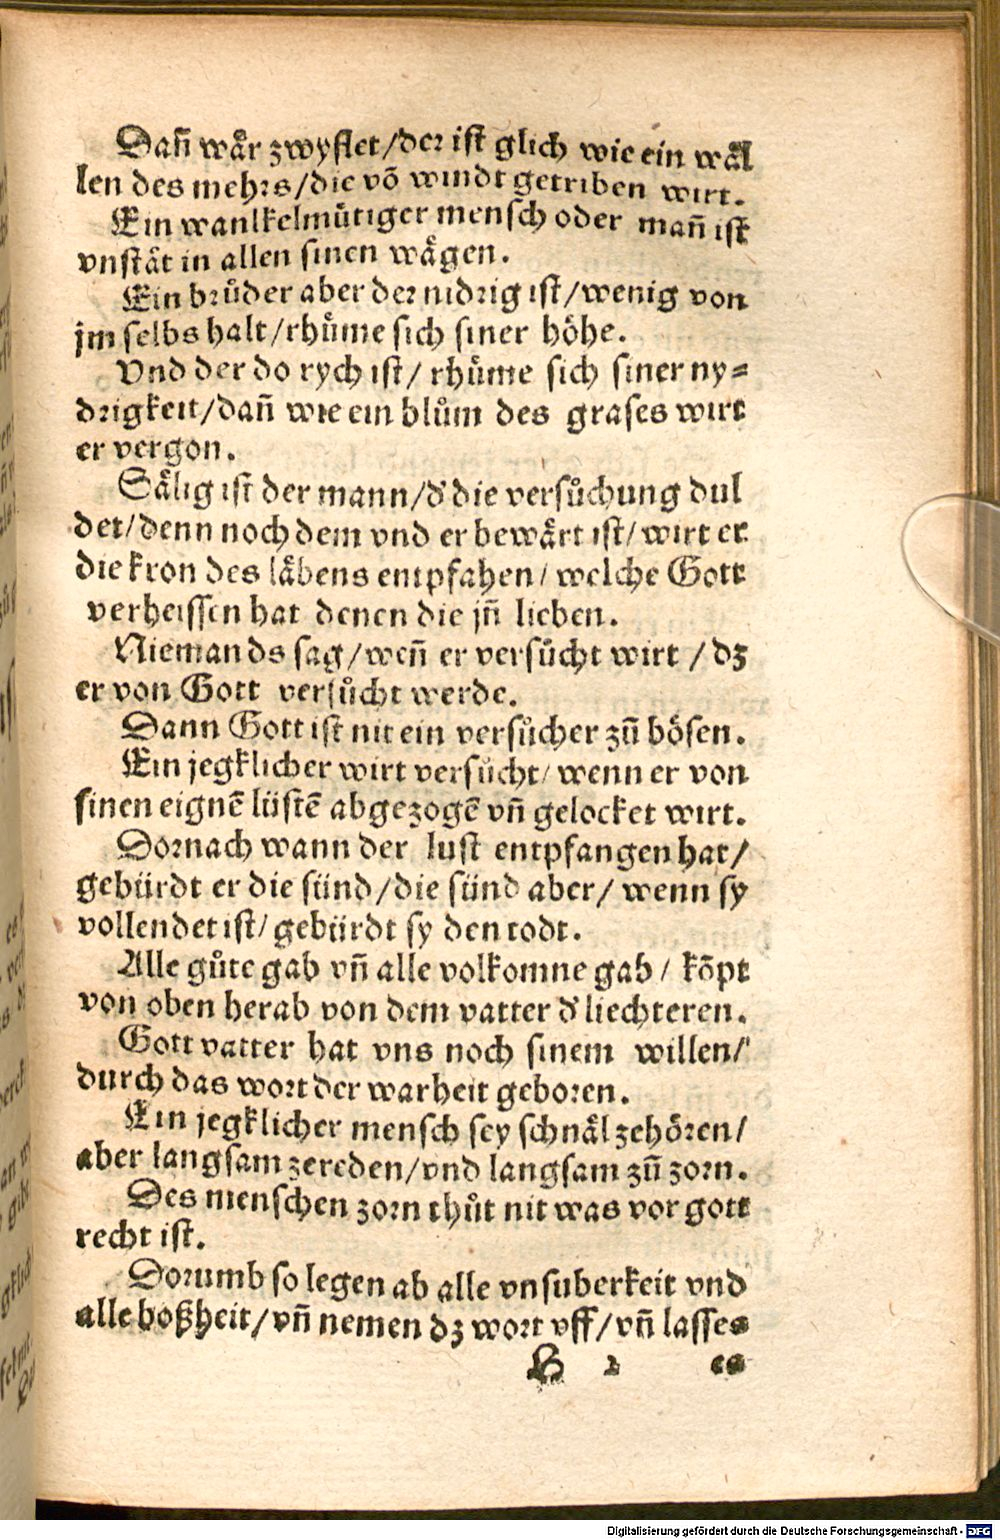 Dañ wår zwyflet/der ist glich wie ein wål
len des mehrs/die võ windt getriben wirt.
Ein wanlkelmütiger mensch oder mañ ist
vnståt in allen sinen wågen.
Ein brůder aber der nidrig ist/wenig von
jm selbs halt/rhůme sich siner höhe.
Vnd der do rych ist/ rhůme sich siner ny⸗
drigkeit/dañ wie ein blům des grases wirt
er vergon.
Sålig ist der mann/d' die versůchung dul
det/denn noch dem vnd er bewårt ist/wirt er
die kron des låbens entpfahen/welche Gott
verheissen hat denen die jñ lieben.
Niemands sag/weñ er versůcht wirt /dz
er von Gott versůcht werde.
Dann Gott ist nit ein versůcher zũ bösen.
Ein jegklicher wirt versůcht/wenn er von
sinen eignẽ lüstẽ abgezogẽ vñ gelocket wirt.
Dornach wann der lust entpfangen hat/
gebürdt er die sünd/die sünd aber/ wenn sy
vollendet ist/gebürdt sy den todt.
Alle gůte gab vñ alle volkomne gab/ kõpt
von oben herab von dem vatter d' liechteren.
Gott vatter hat vns noch sinem willen/
durch das wort der warheit geboren.
Ein jegklicher mensch sey schnål zehören/
aber langsam zereden/vnd langsam zũ zorn.
Des menschen zorn thůt nit was vor gott
recht ist.
Dorumb so legen ab alle vnsuberkeit vnd
alle boßheit/vñ nemen dz wort vff/vñ lasses
H 2 es
Digitalisierung gefördert durch die Deutsche Forschungsgemeinschaft - DFG